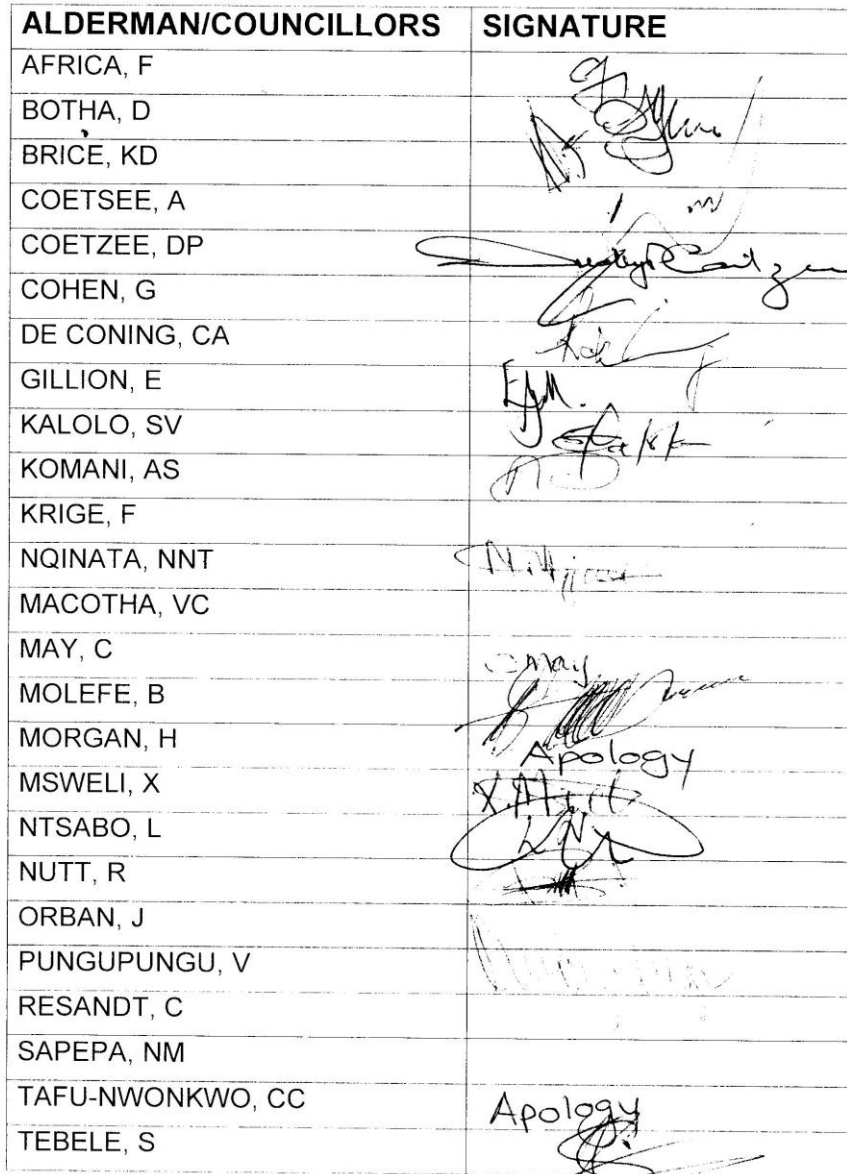 ALDERMAN/COUNCILLORS SIGNATURE
AFRICA, F
BOTHA, D
BRICE, KD
COETSEE, A
COETZEE, DP
COHEN, G
DE CONING, CA
GILLION, E
KALOLO, SV
KOMANI, AS
KRIGE, F
NQINATA, NNT
MACOTHA, VC
MAY, C CMay
MOLEFE, B
MORGAN, H Apology
MSWELI, X
NTSABO, L
NUTT, R
ORBAN, J
PUNGUPUNGU, V
RESANDT, C
SAPEPA, NM
TAFU-NWONKWO, CC Apology
TEBELE, S